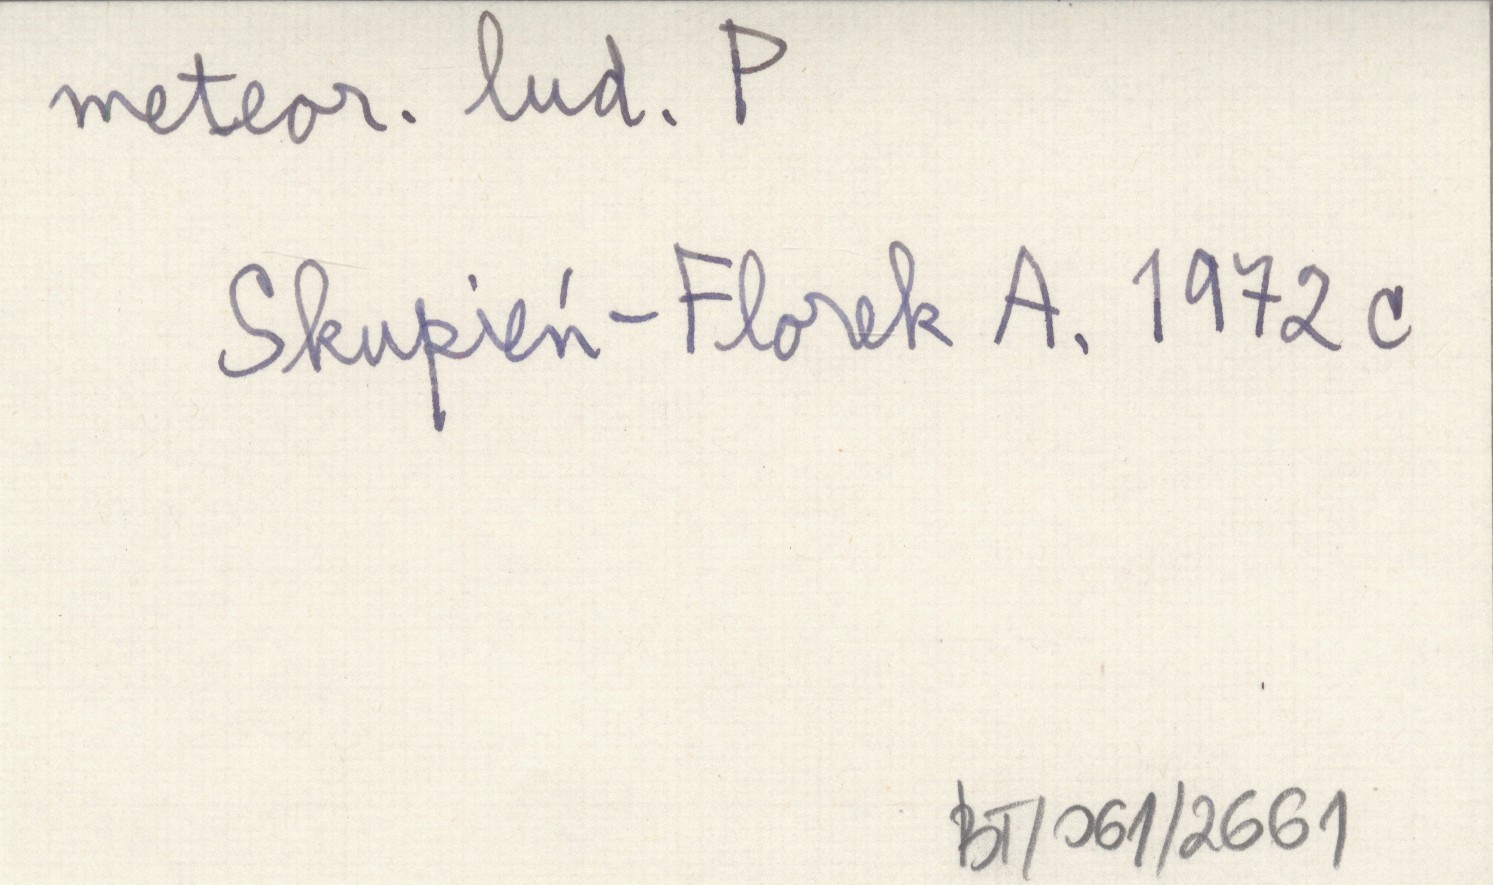 meteor. lud. P
Skupień-Florek A. 1972 c
BT/061/2661